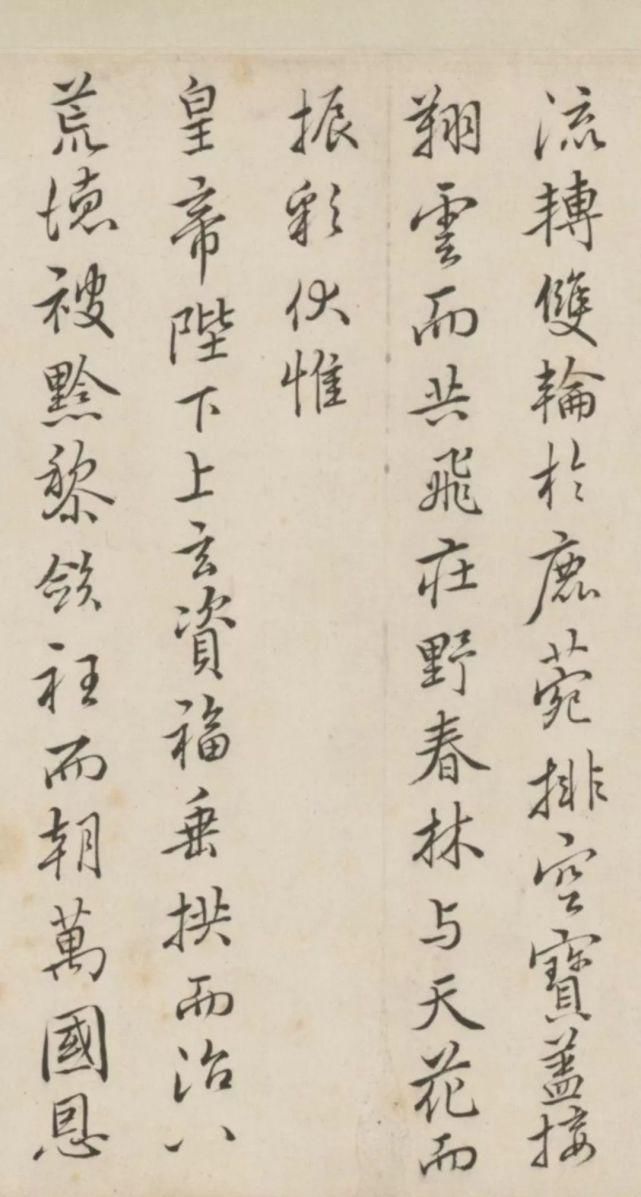 流轉雙輪於鹿菀排空寶蓋接
翔雲而共飛莊野春林与天花而
振彩伏惟
皇帝陛下上玄資福垂拱而治八
荒德被黔黎斂衽而朝萬國恩